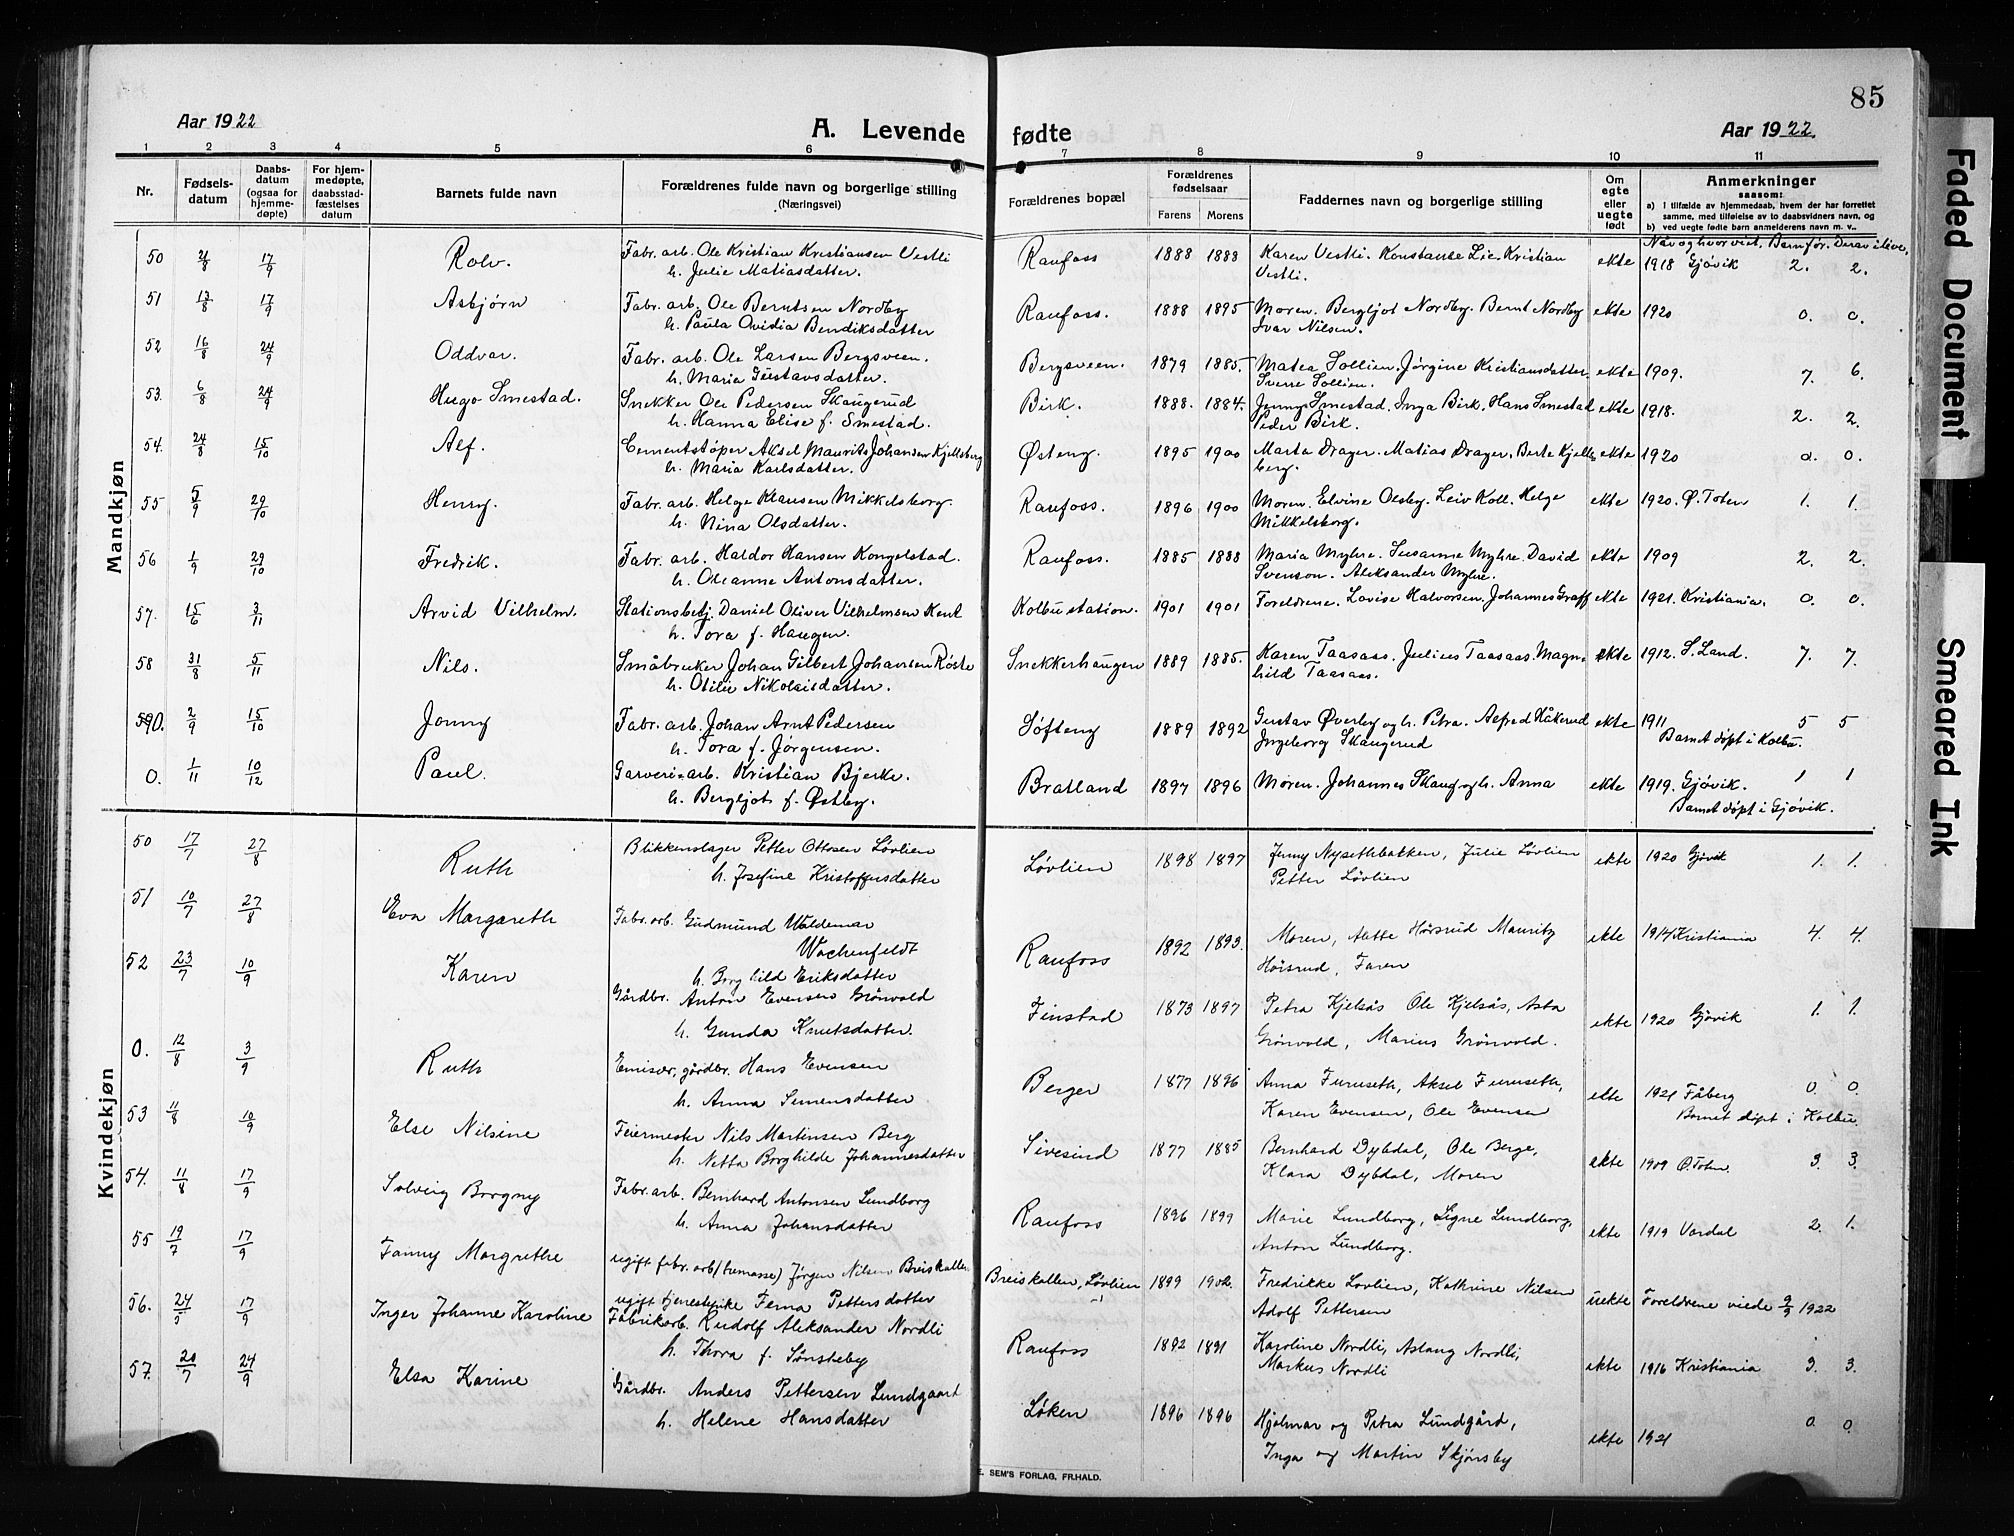 85
Aar 1922
A. Levende fødte
Aar 1922.
1 2 3 4 5 6 7 8 9 10 11
Nr. Fødsels-datum Daabs-datum (ogsaa for hjemme-døpte) For hjem-medøpte, daabsstad-fæstelses datum Barnets fulde navn Forældrenes fulde navn og borgerlige stilling (Næringsvei) Forældrenes bopæl Forældrenes fødselsaar Farens Morens Faddernes navn og borgerlige stilling Om egte eller uegte født Anmerkninger saasom:
a) I tilfælde av hjemmedaab, hvem der har forrettet samme, med tilføielse av to daabsvidners navn, og
b) ved uegte fødte barn anmelderens navn m. v.
Naar og hvor viet. Barn før. Derav i live.
Mandkjøn
50 17/9 Rolv. Fabr. arb. Ole Kristian Kristiansen Vestli Raufoss 1888 1888 Karen Vestli. Konstanse Lie. Kristian ekte 1918 Gjøvik 2. 2.
h. Julie Matiasdatter. Vestli.
51 13/8 17/9 Asbjørn Fabr. arb. Ole Berntsen Nordby Raufoss. 1888 1895 Moren. Bergljot Nordby. Bernt Nordby ekte 1920 0. 0.
h. Paula Ovidia Bendiksdatter Ivar Nilsen.
52 16/8 24/9 Oddvar. Fabr. arb. Ole Larsen Bergsveen. Bergsveen. 1879 1885. Matea Sollien. Jørgine Kristiansdatter. ekte 1909. 7. 6.
h. Maria Gustavsdatter. Sverre Sollien.
53. 6/8 24/9 Hugo Smestad. Snekker Ole Pedersen Skaugerud Birk. 1888. 1884. Jenny Smestad. Inga Birk. Hans Smestad ekte 1918. 2. 2.
h. Hanna Elise f. Smestad. Peder Birk.
54. 24/8 15/10 Alf. Cementstøper Aksel Maurits Johansen Kjellsberg Østeng. 1895 1900 Marta Drager. Matias Drager. Berte Kjells ekte 1920 0. 0.
h. Maria Karlsdatter. berg.
55 5/9 29/10 Henry. Fabr. arb. Helge Klausen Mikkelsborg. Raufoss. 1896 1900 Moren. Elvine Olsby. Leiv Koll. Helge ekte 1920. Ø. Toten 1. 1.
h. Nina Olsdatter. Mikkelsborg.
56 1/9 29/10 Fredrik. Fabr. arb. Haldor Hansen Kongelstad. Raufoss. 1885 1888 Maria Myhre. Susanne Myhre. David ekte 1909 2. 2.
h. Oleanne Antonsdatter. Svenson. Aleksander Myhre.
57. 15/6 3/11 Arvid Vilhelm. Stationsbetj. Daniel Oliver Vilhelmsen Kent Kolbu station. 1901 1901 Foreldrene. Lovise Halvorsen. Johannes Graff ekte 1921. Kristiania. 0. 0.
h. Tora f. Haugen.
58 31/8 5/11 Nils. Småbruker Johan Gilbert Johansen Røste Snekkerhaugen 1889 1885. Karen Taasaas. Julius Taasaas. Magn- ekte 1912. S. Land. 7. 7.
h. Otilie Nikolaisdatter. hild Taasaas.
590. 2/9 15/10 Jonny Fabr. arb. Johan Arnt Pedersen Søfteng 1889 1892 Gustav Øverby og h. Petra. Alfred Håkerud ekte 1911 5 5
h. Tora f. Jørgensen. Ingeborg Skaugerud Barnet døpt i Kolbu.
0. 1/11 10/12 Paul. Garveri-arb. Kristian Bjerke. Bratland 1897 1896 Moren. Johannes Skaug og h. Anna ekte 1919. Gjøvik. 1 1
h. Bergljot f. Østby. Barnet døpt i Gjøvik.
Kvindekjøn
50 17/7 27/8 Ruth Blikkenslager Petter Ottosen Løvlien Løvlien 1898 1897 Jenny Nysethbakken, Julie Løvlien ekte 1920 Gjøvik 1. 1.
h. Josefine Kristoffersdatter Petter Løvlien
51 10/7 27/8 Eva Margareth Fabr. arb. Gudmund Waldemar Raufoss 1892 1893. Moren, Alette Hörsrud Mauritz ekte 1914 Kristiania 4. 4.
Wachenfeldt Hörsrud, Faren
h. Borghild Eriksdatter
52 23/7 10/9 Karen Gårdbr. Anton Evensen Grönvold Finstad 1873 1897 Petra Kjelsås Ole Kjelsås, Asta ekte 1920 Gjøvik 1. 1.
h. Gunda Knutsdatter. Grönvold, Marius Grönvold.
0. 12/8 3/9 Ruth Emisær, gårdbr. Hans Evensen Berger 1877 1896 Anna Furuseth, Aksel Furuseth, ekte 1921 Fåberg 0. 0.
h. Anna Simensdatter Karen Evensen, Ole Evensen Barnet døpt i Kolbu.
53 11/8 10/9 Else Nilsine Feiermester Nils Martinsen Berg Sivesind 1877 1885 Bernhard Dybdal, Ole Berge, ekte 1909 Ø. Toten 3. 3.
h. Netta Borghilde Johannesdatter Klara Dybdal, Moren
54. 11/8 17/9 Solveig Borgny Fabr. arb. Bernhard Antonsen Lundborg Raufoss 1896 1899 Marie Lundborg, Signe Lundborg, ekte 1919 Vardal 2. 1.
h. Anna Johansdatter Anton Lundborg.
55 19/7 17/9 Fanny Margrethe ugift fabr. arb (tremasse) Jørgen Nilsen Breiskallen Breiskallen, Løvlien 1899 1902. Fredrikke Lovlien, Kathrine Nilsen uekte Foreldrene viede 9/9 1922
ugift tjenestepike Ferna Pettersdatter Adolf Pettersen
56. 17/9 Inger Johanne Karoline Fabrikarb. Rudolf Aleksander Nordli Raufoss 1892 1891 Karoline Nordli, Aslaug Nordli, ekte 1916 Kristiania 3. 3.
h. Thora f. Sønsteby Markus Nordli
57. 20/7 24/9 Elsa Karine Gårdbr. Anders Pettersen Lundgaard Løken 1896 1896 Hjalmar og Petra Lundgård, ekte 1921 0. 0.
h. Helene Hansdatter Inga og Martin Skjönsby
E. SEM'S FORLAG, FR.HALD.
Faded Document
Smeared Ink